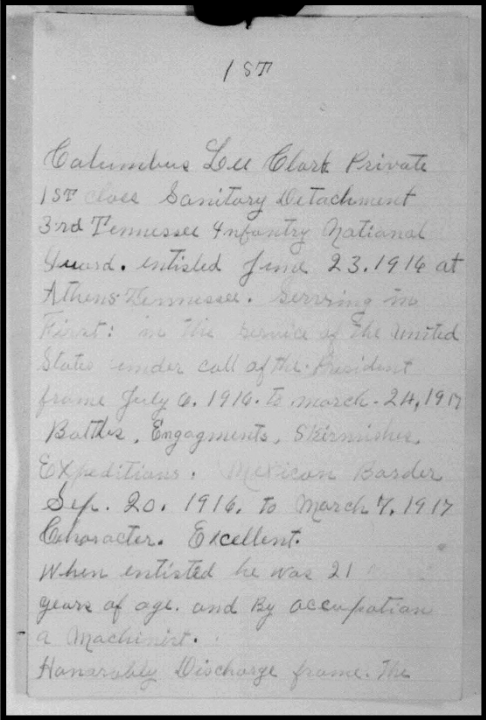 1ST
Columbus Lee Clark Private
1ST class Sanitary Detachment
3rd Tennessee Infantry National
Guard. entisled June 23. 1916 at
Athens Tennessee. Serrring in
First: in the service of the United
States under call of the President
frame July 6. 1916. to march. 24, 1917
Battles, Engagments, Skirmishes,
Expeditions. Mexican Border
Sep. 20. 1916. to March 7. 1917
Character. Excellent.
When entisted he was 21
years of age. and By occupation
a Machinist.
Honorably Discharge frame. The